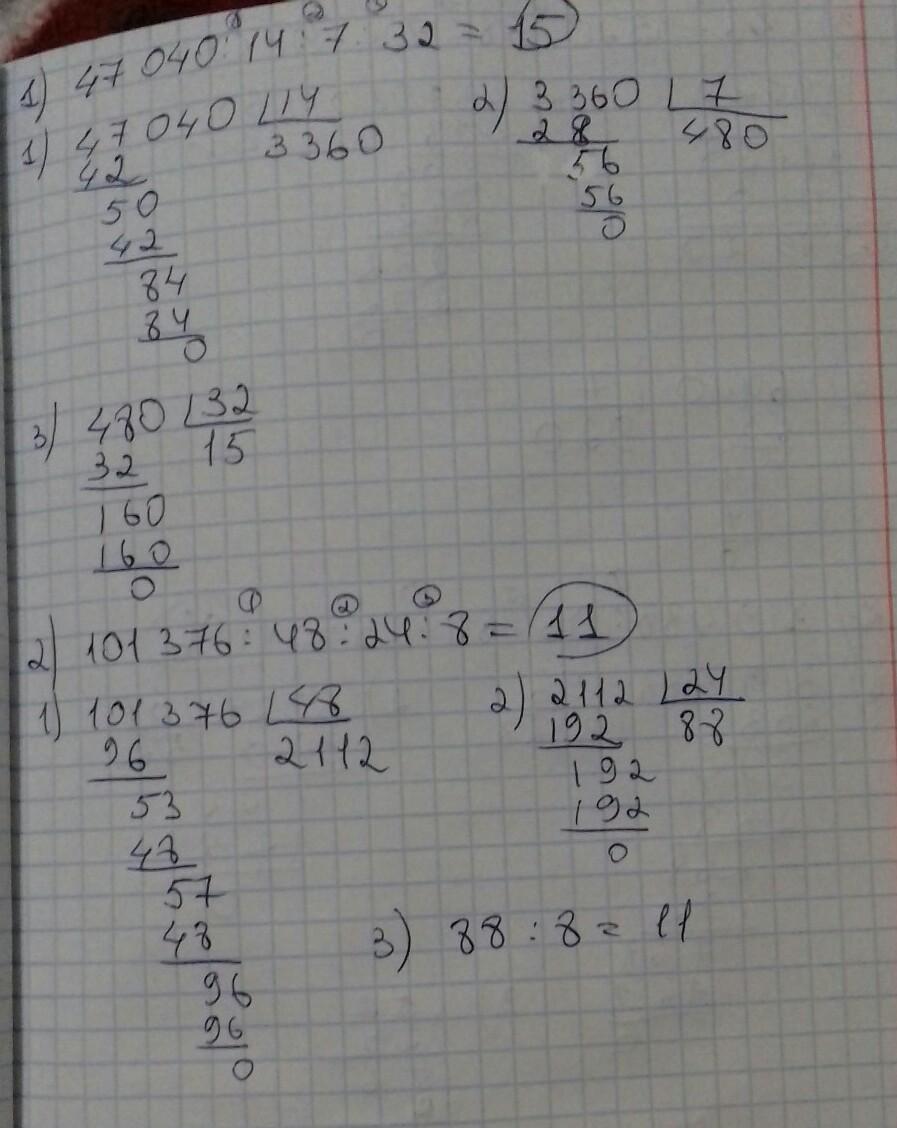 1) 47 040 : 14 : 7 : 32 = 15
1) 47 040 14
3360
42
50
42
84
84
0
2) 3 360 7
28 480
56
56
0
3) 480 32
32 15
160
160
0
① ② ③
2) 101 376 : 48 : 24 : 8 = 11
1) 101 376 48
96 2112
53
48
57
48
96
96
0
2) 2112 24
192 88
192
192
0
3) 88 : 8 = 11